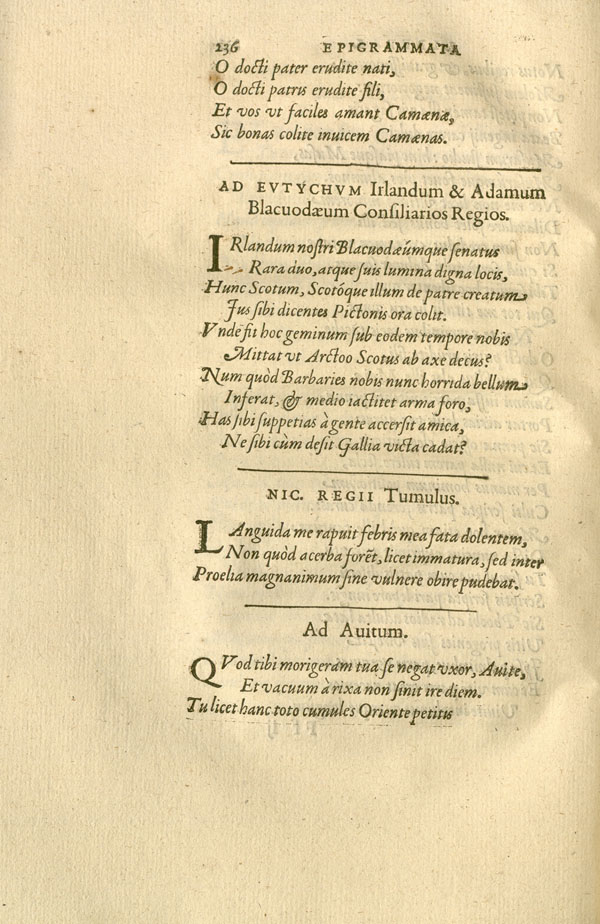 236 EPIGRAMMATA
O docti pater erudite nati,
O docti patris erudite fili,
Et vos vt faciles amant Camœnæ,
Sic bonas colite inuicem Camœnas.
AD EVTYCHVM Irlandum & Adamum
Blacuodæum Consiliarios Regios.
IRlandum nostri Blacuodæúmque senatus
Rara duo, atque suis lumina digna locis,
Hunc Scotum, Scotóque illum de patre creatum
Jus sibi dicentes Pictonis ora colit.
Vnde fit hoc geminum sub eodem tempore nobis
Mittat vt Arctoo Scotus ab axe decus?
Num quòd Barbaries nobis nunc horrida bellum
Inferat, & medio iactitet arma foro,
Has sibi suppetias à gente accersit amica,
Ne sibi cùm desit Gallia victa cadat?
NIC. REGII Tumulus.
LAnguida me rapuit febris mea fata dolentem,
Non quòd acerba forẽt, licet immatura, sed inter
Proelia magnanimum sine vulnere obire pudebat.
Ad Auitum.
QVod tibi morigeram tua se negat vxor, Auite,
Et vacuum à rixa non sinit ire diem.
Tu licet hanc toto cumules Oriente petitis